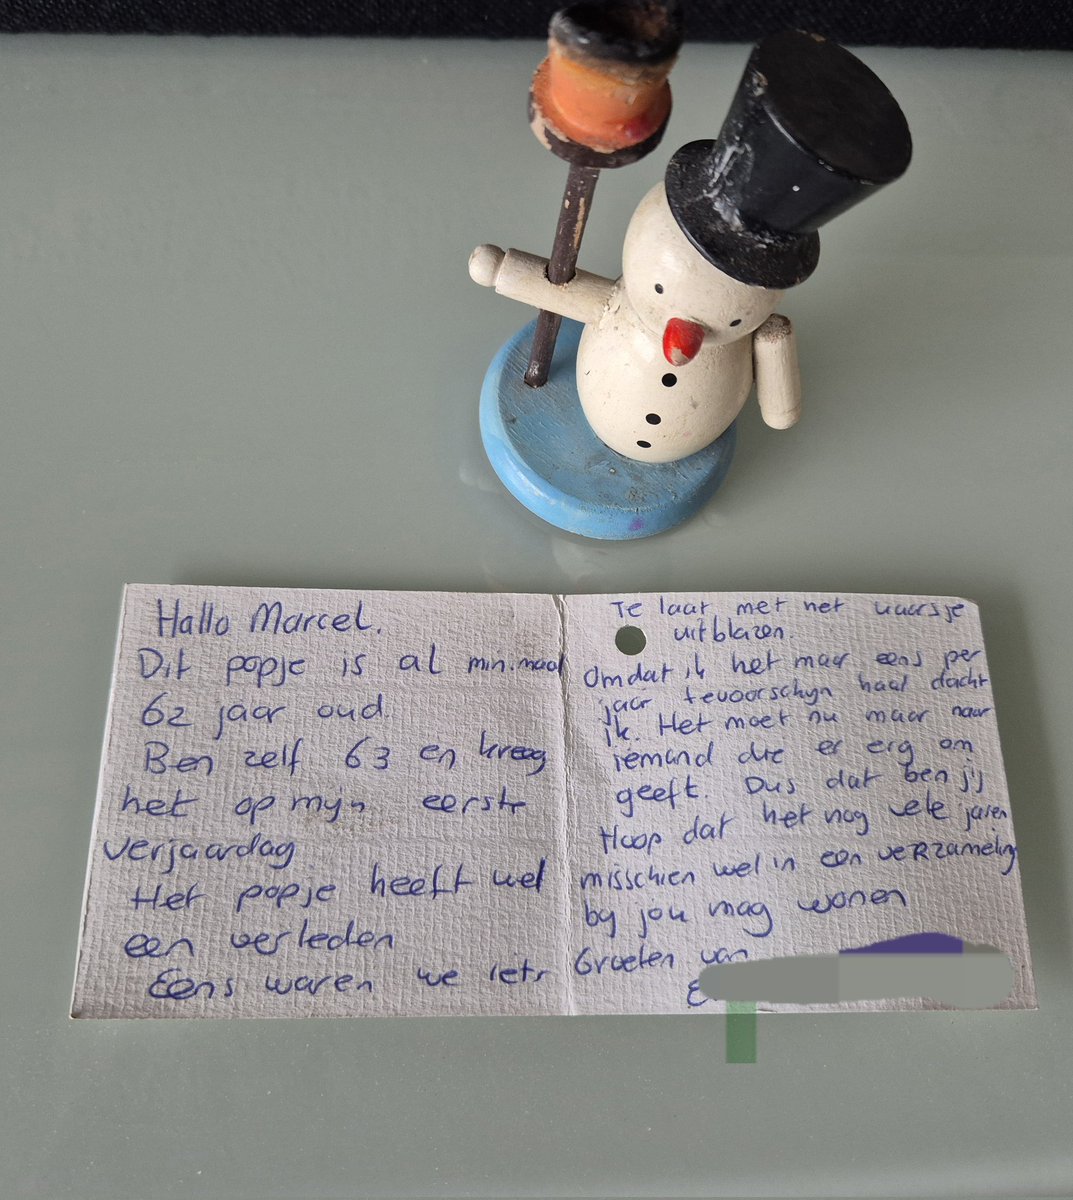 Hallo Marcel.
Dit popje is al min.maal
62 jaar oud.
Ben zelf 63 en kreeg
het op mijn eerste
verjaardag
Het popje heeft wel
een verleden
Eens waren we iets
Te laat met het kaarsje
uitblazen.
Omdat ik het maar eens per
jaar tevoorschijn haal dacht
ik. Het moet nu maar naar
iemand die er erg om
geeft. Dus dat ben jij
Hoop dat het nog vele jaren
misschien wel in een verzameling
bij jou mag wonen
Groeten van